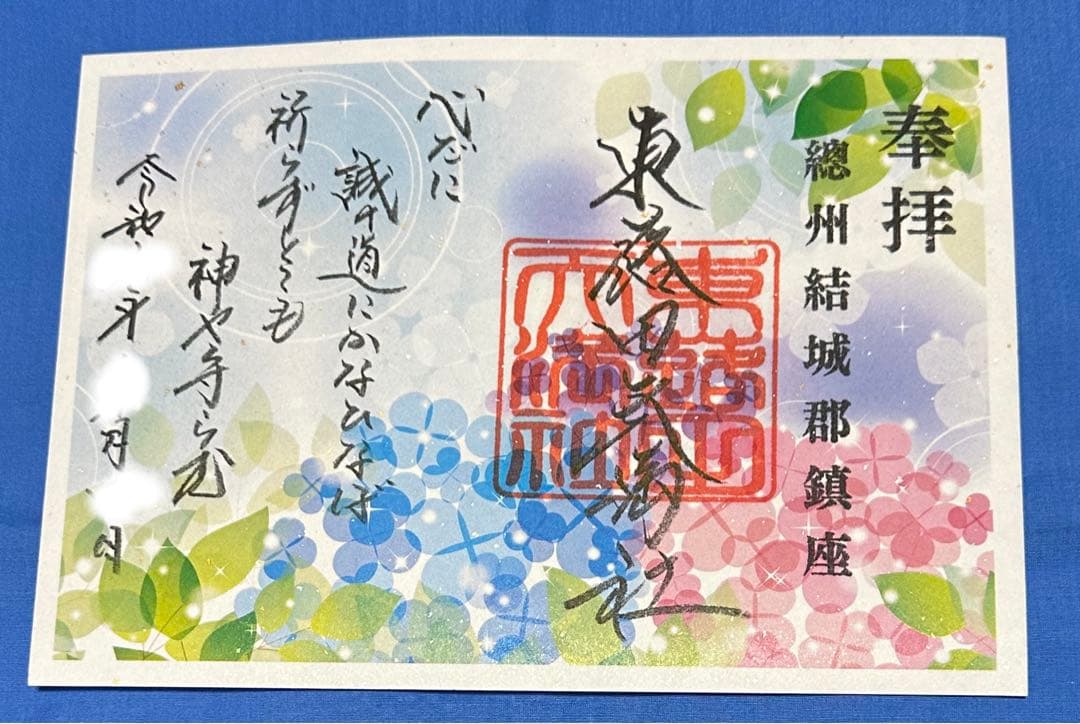 奉拝
總州結城郡鎮座
東蕗田天満社
東蕗田
天満社
心だに
誠の道にかなひなば
祈らずとても
神や守らむ
令和 年 月 日